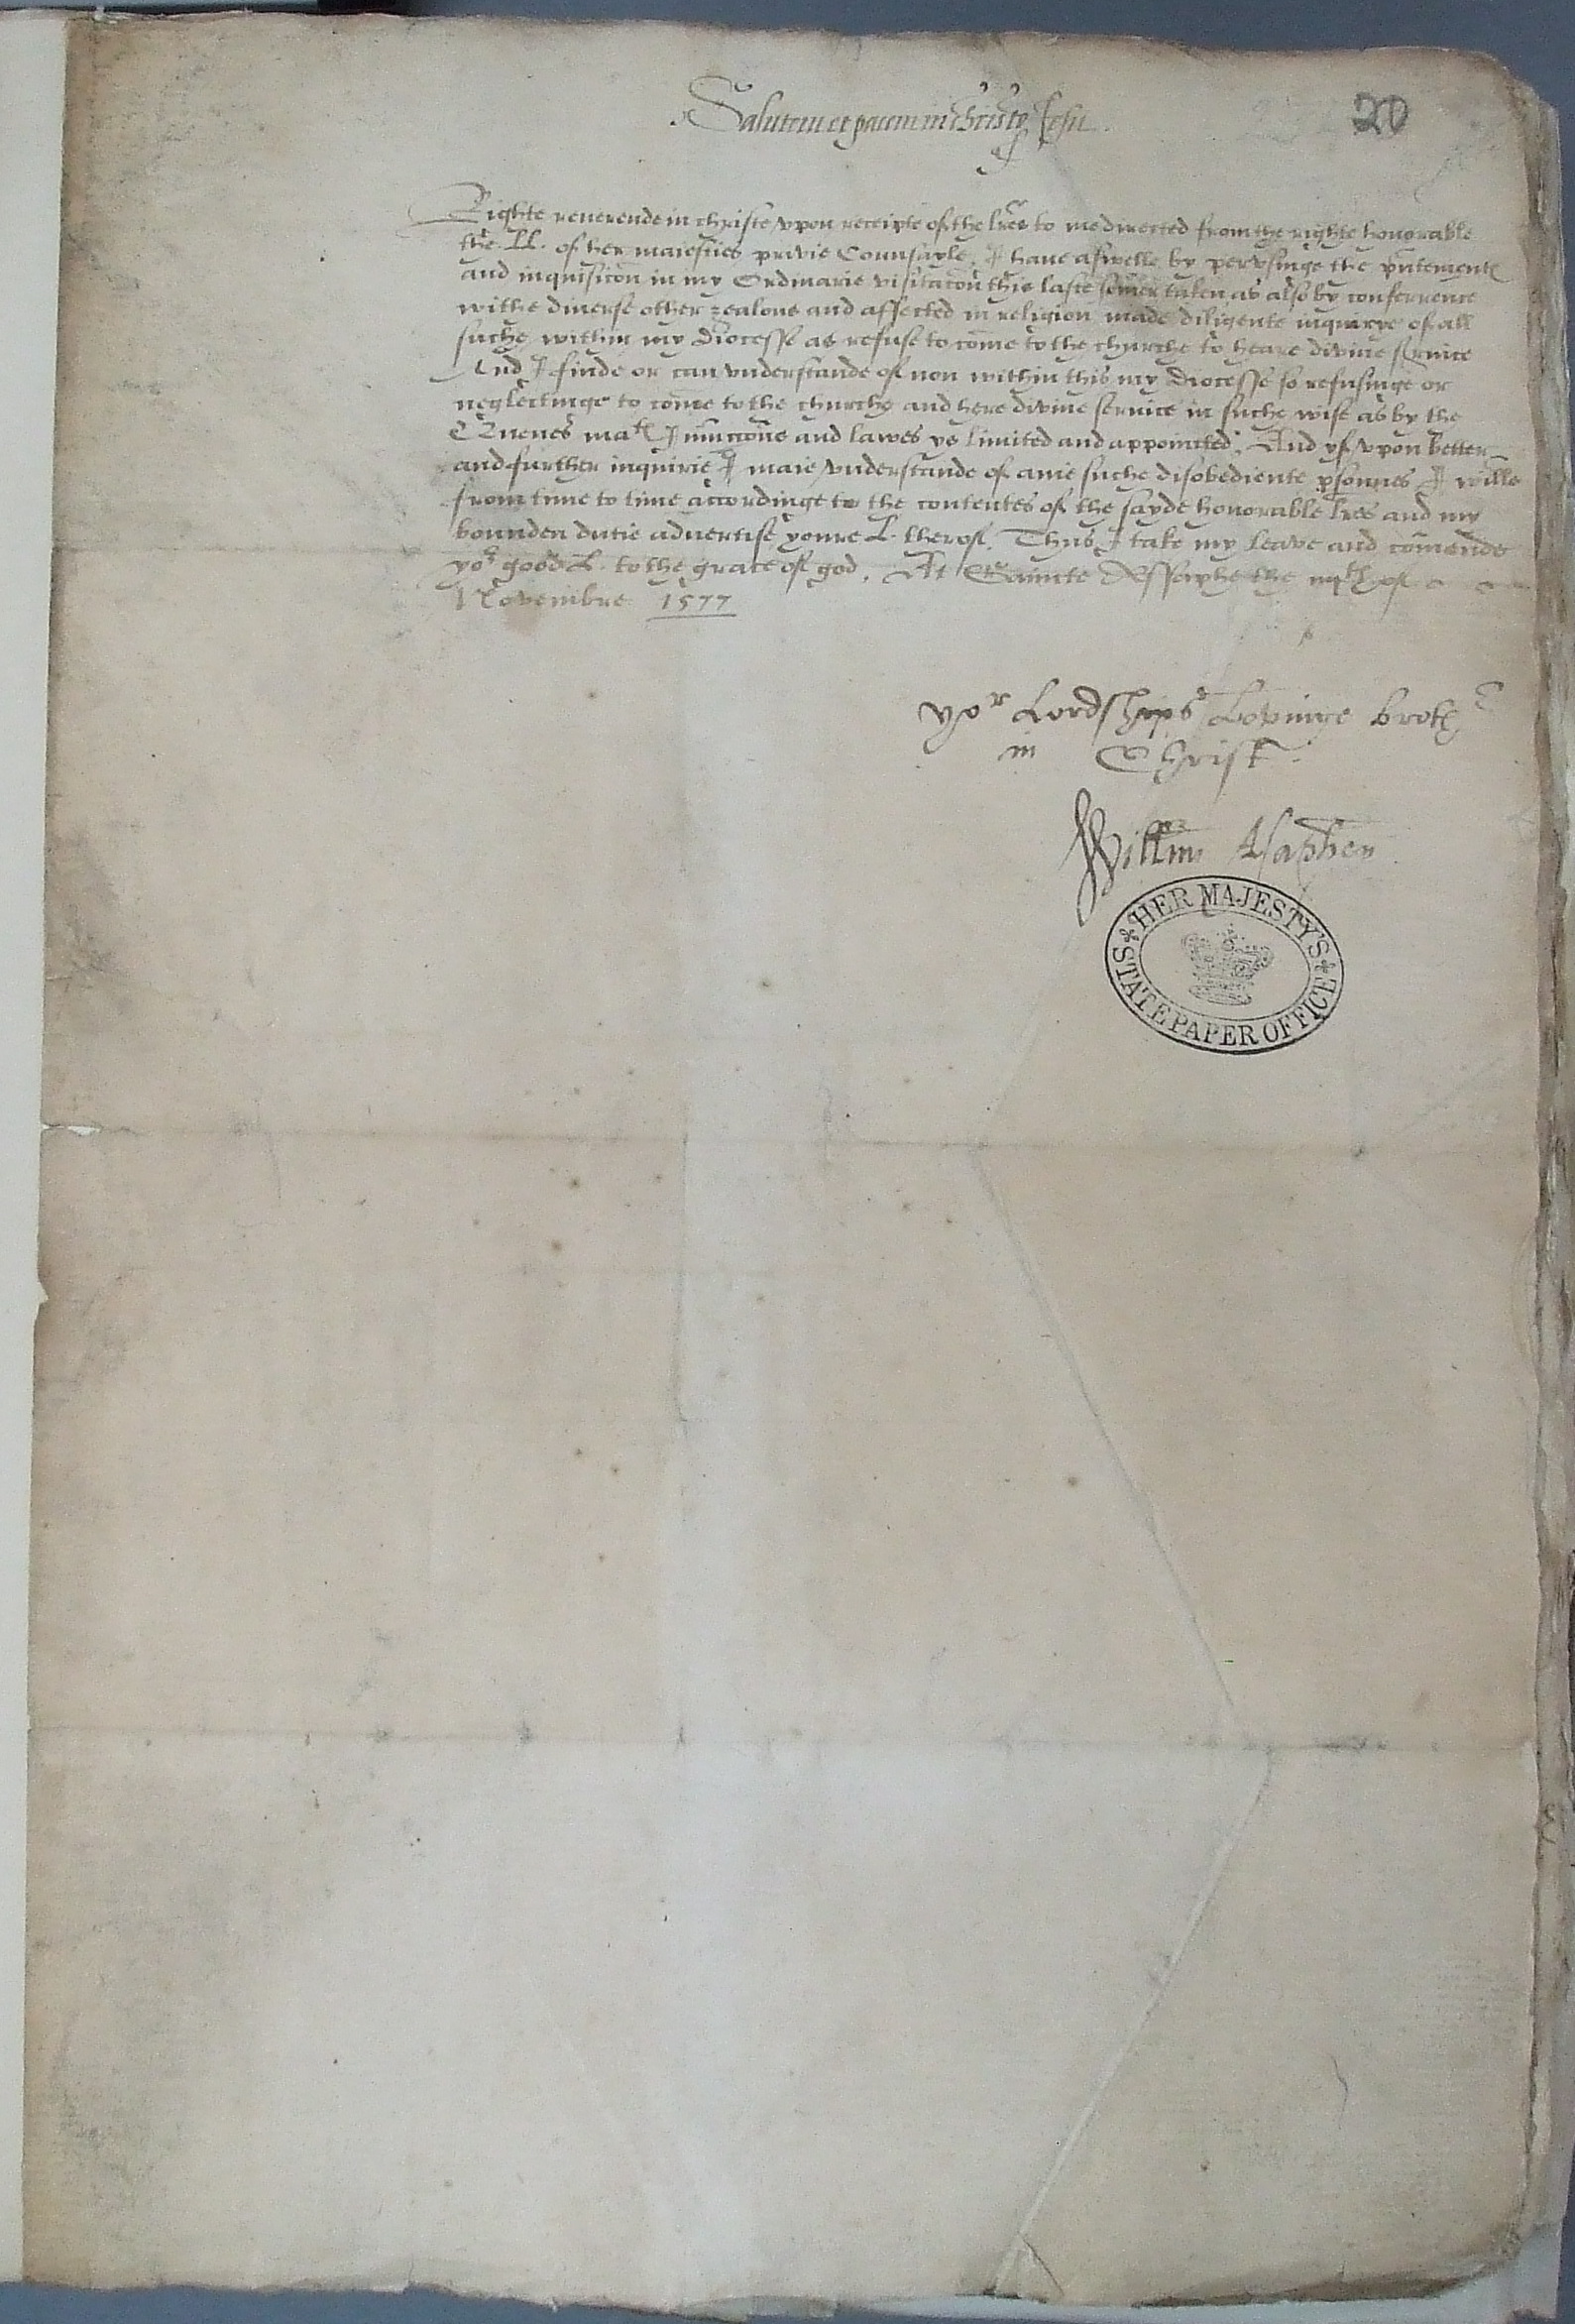 Salutem et pacem in christo Jesu.
20
Righte reverende in christe / vpon receipte of the lres to me directed from the righte honorable
the LL. of her maiesties privie Counsayle, I have aswelle by pervsinge the pntementes
and inquisicon in my Ordinarie visitacon this laste somer taken, as also by conferrence
withe diverse other zealous and affected in religion made diligente inquirye of all
suche within my diocesse as refuse to come to the churche to heare divine service
And I finde or can vnderstande of non within this my diocesse so refusinge or
neglectinge to come to the churche and here divine service in suche wise as by the
Quenes matis Iniunctions and lawes ys limited and appointed. And yf vpon better
and further inquirie I maie vnderstande of anie suche disobediente psonnes I wille
from time to time accordinge to the contentes of the sayde honorable lres and my
bounden dutie advertise youre L. therof. Thus I take my leave and comende
yor good L. to the grace of god. At Sainte Assaphe the of
Novembre 1577
yor Lordships Lovinge broth
in Christ.
Willm Asaphen
HER MAJESTY'S
STATE PAPER OFFICE